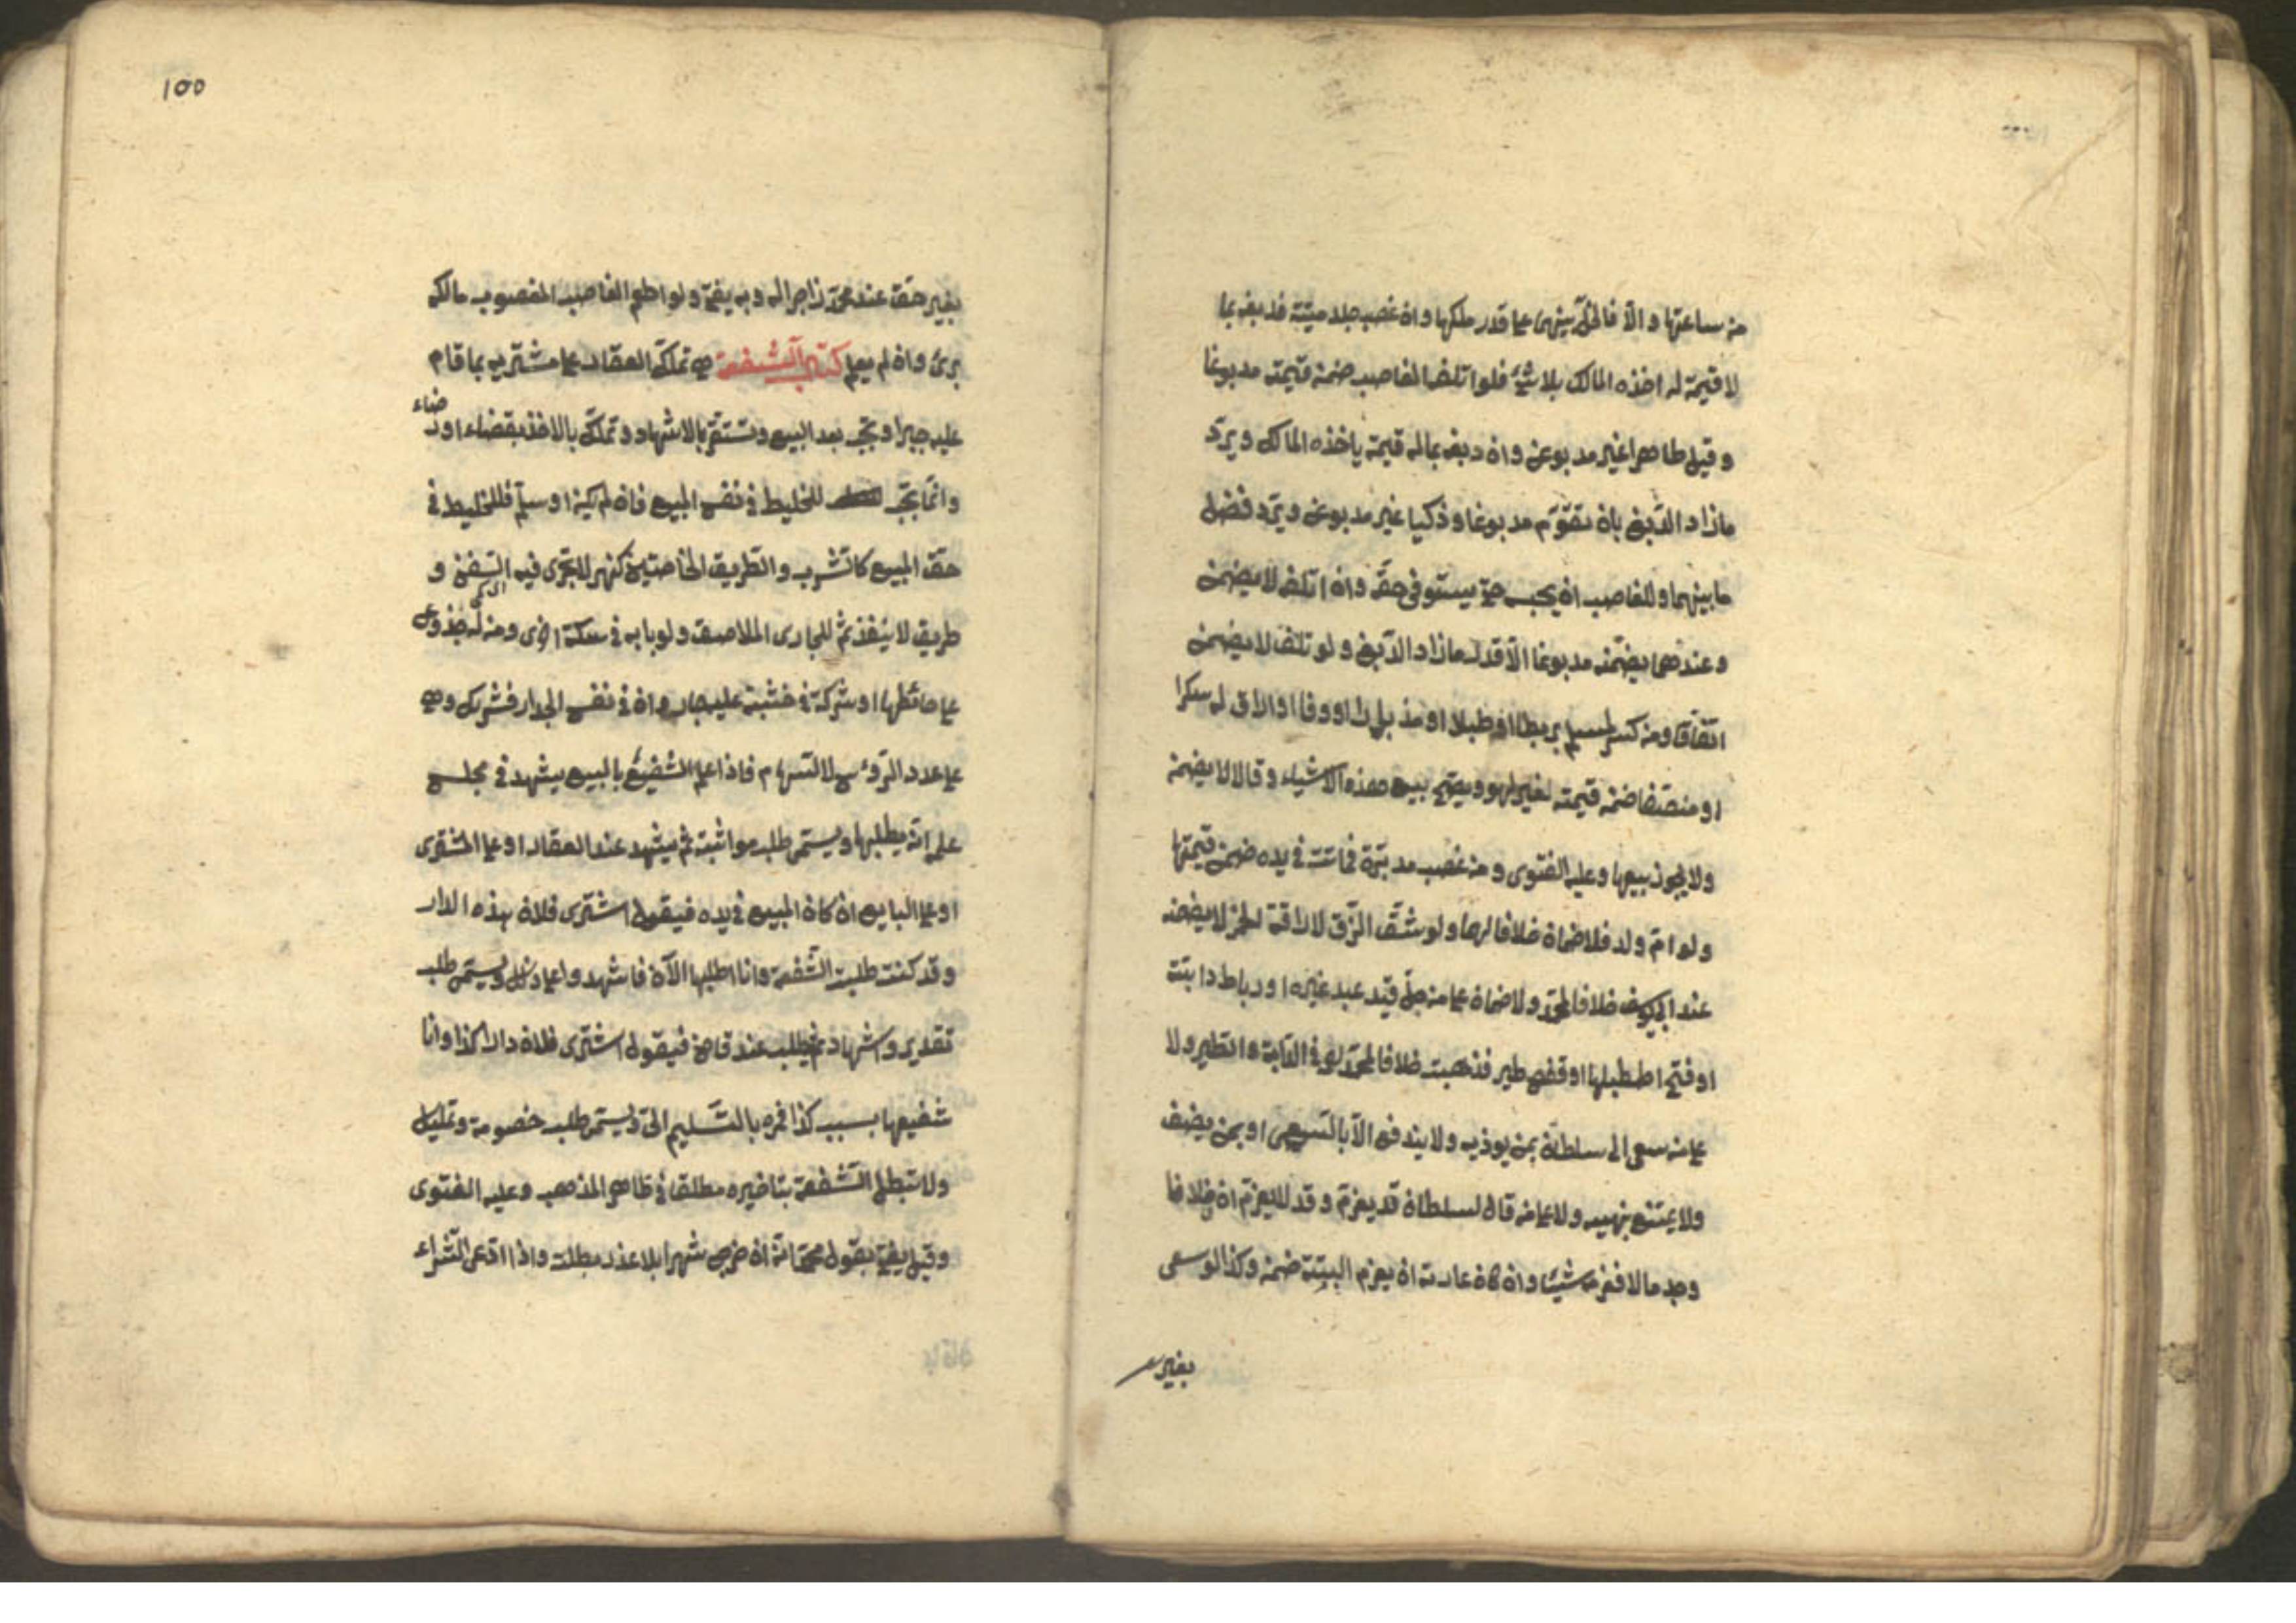 من ساعتها والا فالخل بينهما على قدر ملكهما وان غصب جلد ميتة فدبغه بما
لا قيمة له اخذه المالك بلا شئ فلو اتلفه الغاصب ضمن قيمته مدبوغا
وقيل طاهرا غير مدبوغ وان دبغه بما له قيمة ياخذه المالك ويرد
ما زاد الدبغ بان يقوم مدبوغا وذكيا غير مدبوغ ويرد فضل
ما بينهما وللغاصب ان يحبسه حتى يستوفى حقه وان اتلفه لا يضمن
وعندهما يضمنه مدبوغا الا قدر ما زاد الدبغ ولو تلف لا يضمن
اتفاقا ومن كسر لمسلم بربطا او طبلا او مزمارا او دفا او اراق له سكرا
او منصفا ضمن قيمته لغير لهو ويصح بيع هذه الاشياء وقالا لا يضمن
ولا يجوز بيعها وعليه الفتوى ومن غصب مدبرة فماتت فى يده ضمن قيمتها
ولو ام ولد فلا ضمان خلافا لهما ولو شق الزق لاراقة الخمر لا يضمنه
عند ابى يوسف خلافا لمحمد ولا ضمان على من حل قيد عبد غيره او رباط دابته
او فتح اصطبلها او قفص طير فذهبت خلافا لمحمد فى الدابة والطير ولا
على من سعى الى سلطان بمن يوذيه ولا يندفع الا بالسعى او بمن يفسق
ولا يمتنع بنهيه ولا على من قال لسلطان قد يغرم وقد لا يغرم ان فلانا
وجد مالا فغرمه شيئا وان كان عادته ان يغرم البتة ضمن وكذا لو سعى
بغير
١٥٥
بغير حق عند محمد زاجرا له وبه يفتى ولو اطعم الغاصب المغصوب مالكه
برئ وان لم يعلم كتاب الشفعة هى تملك العقار على مشتريه بما قام
عليه جبرا وتجب بعد البيع وتستقر بالاشهاد وتملك بالاخذ بقضاء او رضاء
وانما تجب للخليط فى نفس المبيع فان لم يكن او سلم فللخليط فى
حق المبيع كالشرب والطريق الخاصين كنهر لا تجرى فيه السفن و
طريق لا ينفذ ثم للجار الملاصق ولو بابه فى سكة اخرى ومن له جذوع
على حائطها او شركة فى خشبة عليه جار وان فى نفس الجدار فشريك وهى
على عدد الرؤس لا السهام فاذا علم الشفيع بالبيع يشهد فى مجلس
علمه انه يطلبها ويسمى طلب مواثبة ثم يشهد عند العقار او على المشترى
او على البايع ان كان المبيع فى يده فيقول اشترى فلان هذه الدار
وقد كنت طلبت الشفعة وانا اطلبها الآن فاشهدوا على ذلك ويسمى طلب
تقرير واشهاد ثم يطلب عند قاض فيقول اشترى فلان دار كذا وانا
شفيعها بسبب كذا فمره بالتسليم الى ويسمى طلب خصومة وتمليك
ولا تبطل الشفعة بتاخيره مطلقا فى ظاهر المذهب وعليه الفتوى
وقيل يفتى بقول محمد انه ان اخر شهرا بلا عذر بطلت واذا ادعى الشراء